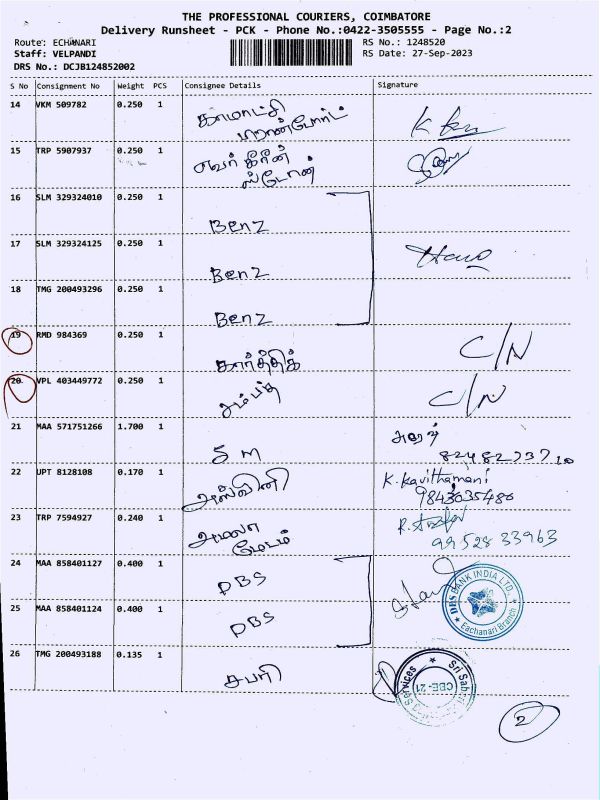 THE PROFESSIONAL COURIERS, COIMBATORE
Delivery Runsheet - PCK - Phone No.:0422-3505555 - Page No.:2
Route: ECHANARI RS No.: 1248520
Staff: VELPANDI RS Date: 27-Sep-2023
DRS No.: DCJB124852002
S No Consignment No Weight PCS Consignee Details Signature
14 VKM 509782 0.250 1 காமாட்சி
15 TRP 5907937 0.250 1 சுவர் கிரீன்
ஸ்டோன்
16 SLM 329324010 0.250 1 Benz
17 SLM 329324125 0.250 1 Benz
18 TMG 200493296 0.250 1 Benz
19 RMD 984369 0.250 1 கார்த்திக் C/N
20 VPL 403449772 0.250 1 சம்பத் C/N
21 MAA 571751266 1.700 1 SM
22 UPT 8128108 0.170 1 அஸ்வினி K. Kavithamani
9843035480
23 TRP 7594927 0.240 1 அமலா
மேடம் 99528 33963
24 MAA 858401127 0.400 1 DBS
25 MAA 858401124 0.400 1 DBS
DBS BANK INDIA LTD.
Eachanari Branch
26 TMG 200493188 0.135 1 சபரி
Sri Sabari
Services
CBE-21
2